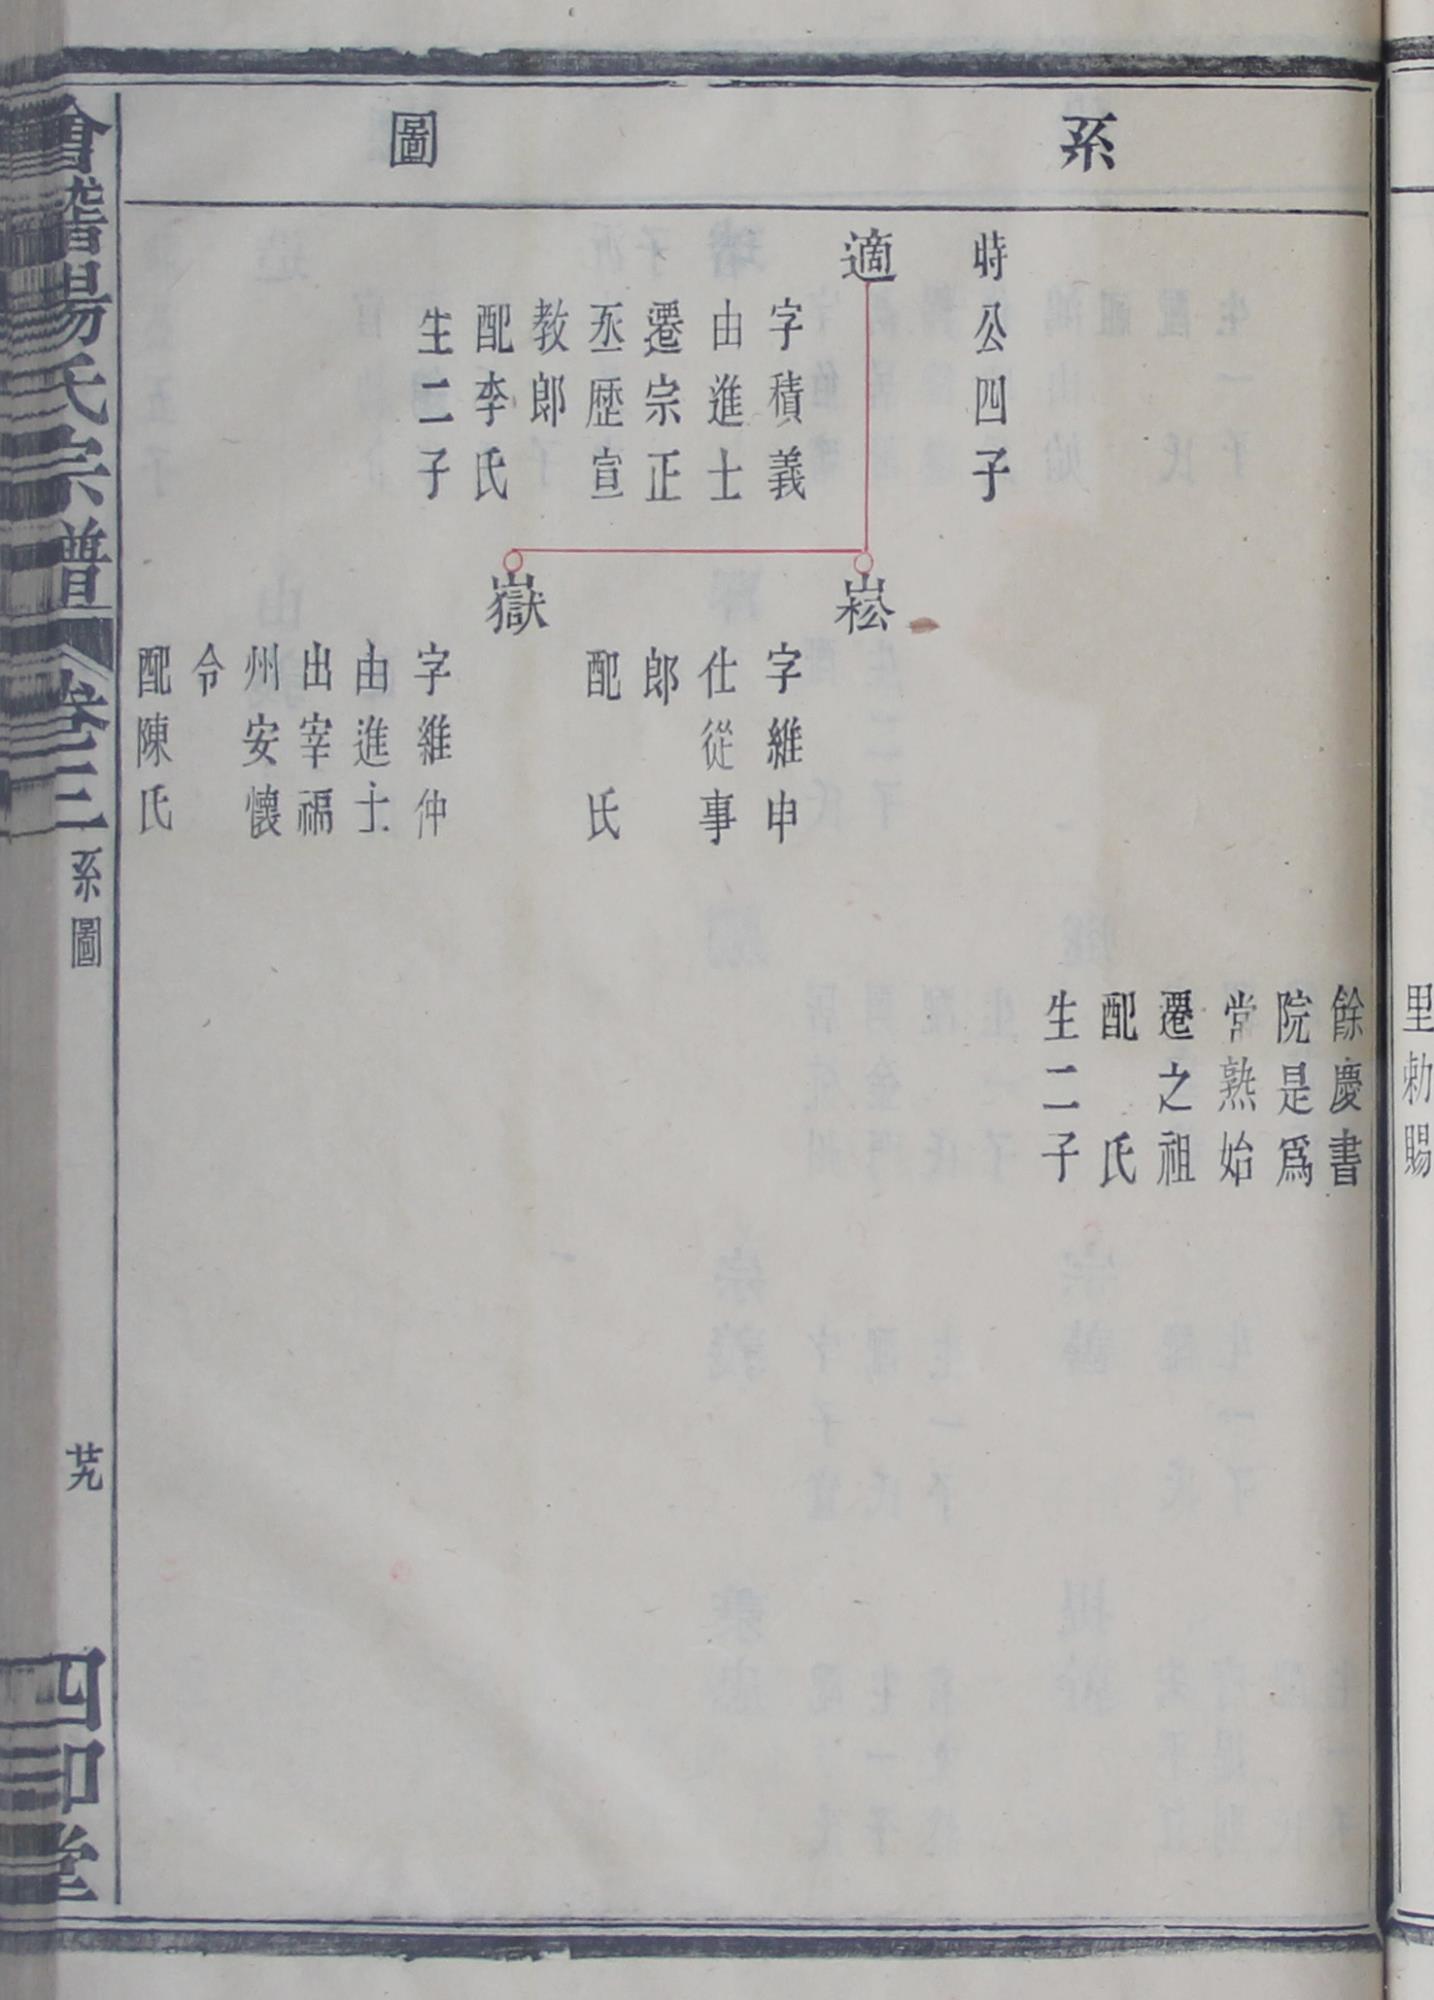 里勅賜
系圖
餘慶書
院是爲
常熟始
遷之祖
配　氏
生二子
時公四子
適
字積義
由進士
遷宗正
丞歷宣
教郎
配李氏
生二子
崧
字維申
仕從事
郎
配　氏
嶽
字維仲
由進士
出宰福
州安懷
令
配陳氏
會稽楊氏宗譜
卷三
系圖
廿九
四知堂